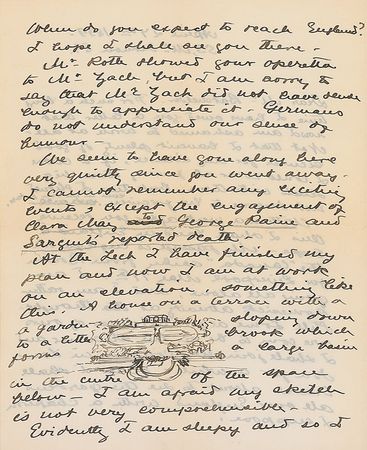 When do you expect to reach England?
I hope I shall see you there.
Mr. Roth showed your operetta
to Mr. Zach, but I am sorry to
say that Mr. Zach did not have sense
enough to appreciate it. Germans
do not understand our sense of
humour.
We seem to have gone along here
very quietly since you went away.
I cannot remember any exciting
events, except the engagement of
Clara May to George Paine and
Sargent's reported death.
At the Tech I have finished my
plan and now I am at work
on an elevation, something like
this. A house on a terrace with a
a garden sloping down
to a little brook which
forms a large basin
in the centre of the space
below – I am afraid my sketch
is not very comprehensible.
Evidently I am sleepy and so I